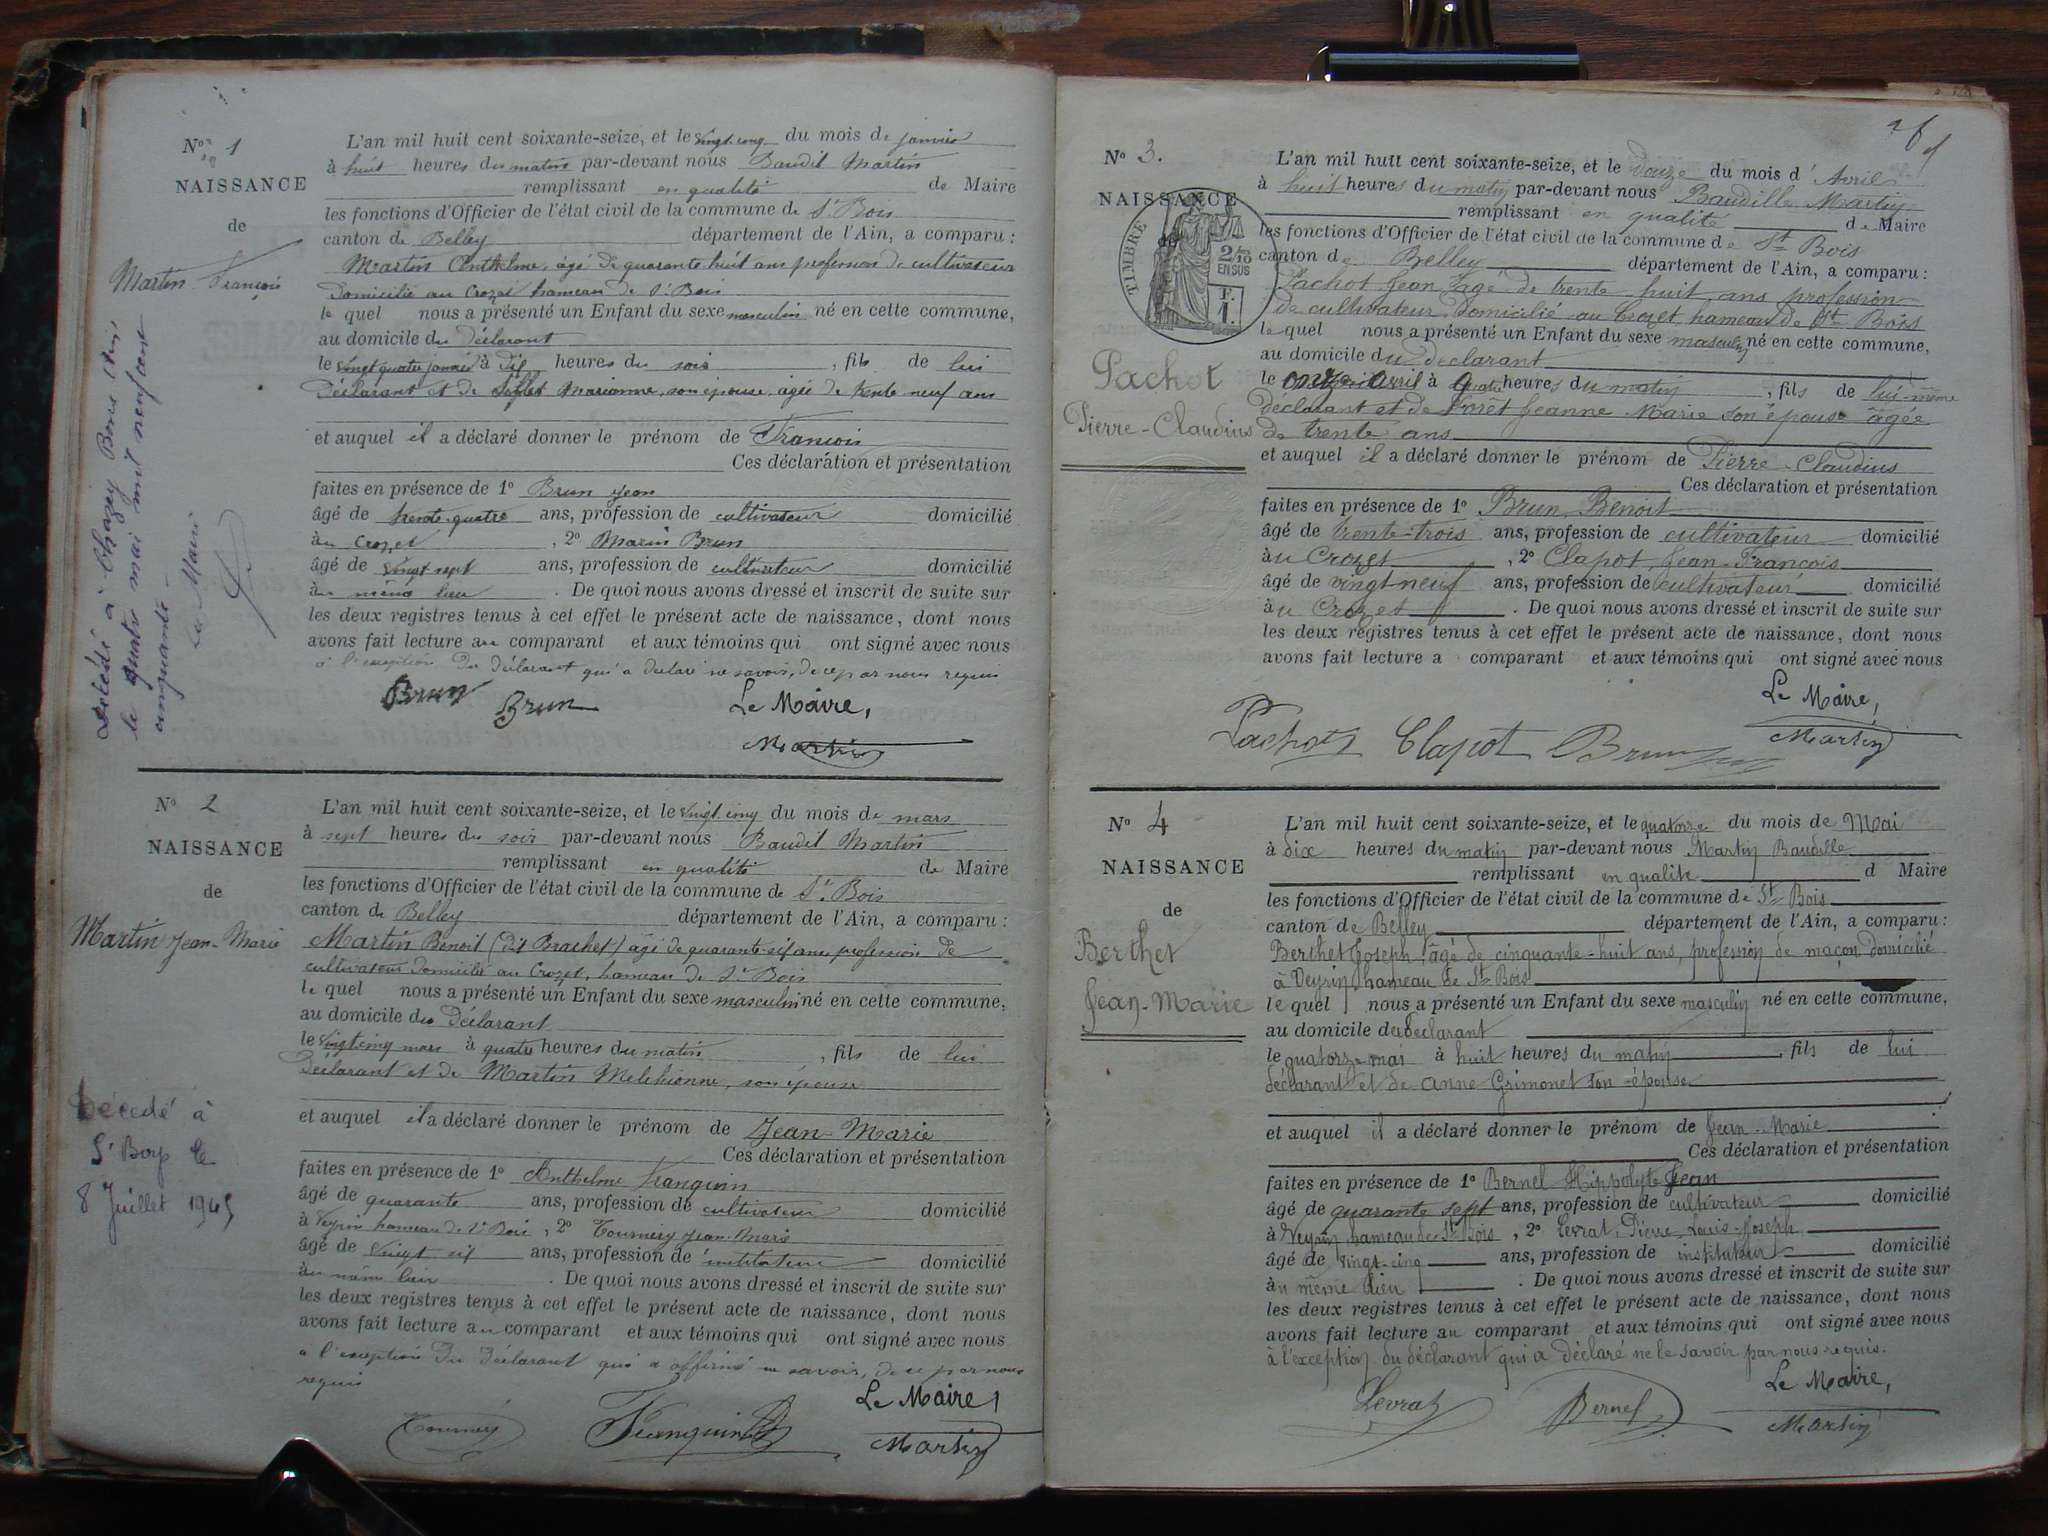 No 1
NAISSANCE
de
Martin François
Décédé à Chazey Bons
le quatre mai mil neuf cent
cinquante
Le Maire
L'an mil huit cent soixante-seize, et le vingt cinq du mois de janvier
à huit heures du matin par-devant nous Baudil Martin
remplissant en qualité de Maire
les fonctions d'Officier de l'état civil de la commune de St Bois
canton de Belley département de l'Ain, a comparu :
Martin Anthelme, âgé de quarante huit ans profession de cultivateur
domicilié au Crozet hameau de St Bois
lequel nous a présenté un Enfant du sexe masculin né en cette commune,
au domicile du déclarant
le vingt quatre janvier à dix heures du soir, fils de lui
déclarant et de Marianne, son épouse, âgée de trente neuf ans
et auquel il a déclaré donner le prénom de François
Ces déclaration et présentation
faites en présence de 1o Brun Jean
âgé de trente-quatre ans, profession de cultivateur domicilié
au Crozet, 2o Marin Brun
âgé de vingt sept ans, profession de cultivateur domicilié
au même lieu. De quoi nous avons dressé et inscrit de suite sur
les deux registres tenus à cet effet le présent acte de naissance, dont nous
avons fait lecture au comparant et aux témoins qui ont signé avec nous
à l'exception du déclarant qui a déclaré ne savoir, de ce par nous requis
Brun Brun Le Maire,
Martin
No 2
NAISSANCE
de
Martin Jean-Marie
Décédé à
St Boys le
8 Juillet 1945
L'an mil huit cent soixante-seize, et le vingt cinq du mois de mars
à sept heures du soir par-devant nous Baudil Martin
remplissant en qualité de Maire
les fonctions d'Officier de l'état civil de la commune de St Bois
canton de Belley département de l'Ain, a comparu :
Martin Benoit (dit Brachet) âgé de quarante-six ans profession de
cultivateur domicilié au Crozet, hameau de St Bois
lequel nous a présenté un Enfant du sexe masculin né en cette commune,
au domicile du déclarant
le vingt cinq mars à quatre heures du matin, fils de lui
déclarant et de Martin Melchionne, son épouse
et auquel il a déclaré donner le prénom de Jean-Marie
Ces déclaration et présentation
faites en présence de 1o Anthelme Franquin
âgé de quarante ans, profession de cultivateur domicilié
à Veyrin hameau de St Bois, 2o Tournery Jean-Marie
âgé de vingt six ans, profession de instituteur domicilié
au même lieu. De quoi nous avons dressé et inscrit de suite sur
les deux registres tenus à cet effet le présent acte de naissance, dont nous
avons fait lecture au comparant et aux témoins qui ont signé avec nous
à l'exception du déclarant qui a affirmé ne savoir, de ce par nous
requis
Le Maire,
Franquin Martin
No 3.
NAISSANCE
TIMBRE
2/10
EN SUS
Pachot
Pierre-Claudius
L'an mil huit cent soixante-seize, et le douze du mois d'Avril
à huit heures du matin par-devant nous Baudille Martin
remplissant en qualité de Maire
les fonctions d'Officier de l'état civil de la commune de St Bois
canton de Belley département de l'Ain, a comparu :
Pachot Jean, âgé de trente huit ans profession
de cultivateur, domicilié au Crozet, hameau de St Bois
lequel nous a présenté un Enfant du sexe masculin né en cette commune,
au domicile du déclarant
le onze avril à quatre heures du matin, fils de lui-même
déclarant et de Forêt Jeanne Marie son épouse âgée
de trente ans
et auquel il a déclaré donner le prénom de Pierre-Claudius
Ces déclaration et présentation
faites en présence de 1o Brun Benoit
âgé de trente-trois ans, profession de cultivateur domicilié
au Crozet, 2o Clapot, Jean-François
âgé de vingt neuf ans, profession de cultivateur domicilié
au Crozet. De quoi nous avons dressé et inscrit de suite sur
les deux registres tenus à cet effet le présent acte de naissance, dont nous
avons fait lecture a comparant et aux témoins qui ont signé avec nous
Le Maire,
Pachot Clapot Brun Martin
No 4
NAISSANCE
de
Berthet
Jean-Marie
L'an mil huit cent soixante-seize, et le quatorze du mois de Mai
à dix heures du matin par-devant nous Martin Baudille
remplissant en qualité d Maire
les fonctions d'Officier de l'état civil de la commune de St Bois
canton de Belley département de l'Ain, a comparu :
Berthet Joseph âgé de cinquante-huit ans, profession de maçon domicilié
à Veyrin hameau de St Bois
lequel nous a présenté un Enfant du sexe masculin né en cette commune,
au domicile du déclarant
le quatorze mai à huit heures du matin, fils de lui
déclarant et de Anne Grimonet son épouse
et auquel il a déclaré donner le prénom de Jean-Marie
Ces déclaration et présentation
faites en présence de 1o Bernel Hippolyte Jean
âgé de quarante sept ans, profession de cultivateur domicilié
à Veyrin hameau de St Bois, 2o Levrat, Pierre-Louis-Joseph
âgé de vingt-cinq ans, profession de instituteur domicilié
au même lieu. De quoi nous avons dressé et inscrit de suite sur
les deux registres tenus à cet effet le présent acte de naissance, dont nous
avons fait lecture au comparant et aux témoins qui ont signé avec nous
à l'exception du déclarant qui a déclaré ne le savoir par nous requis.
Le Maire,
Levrat Bernel Martin